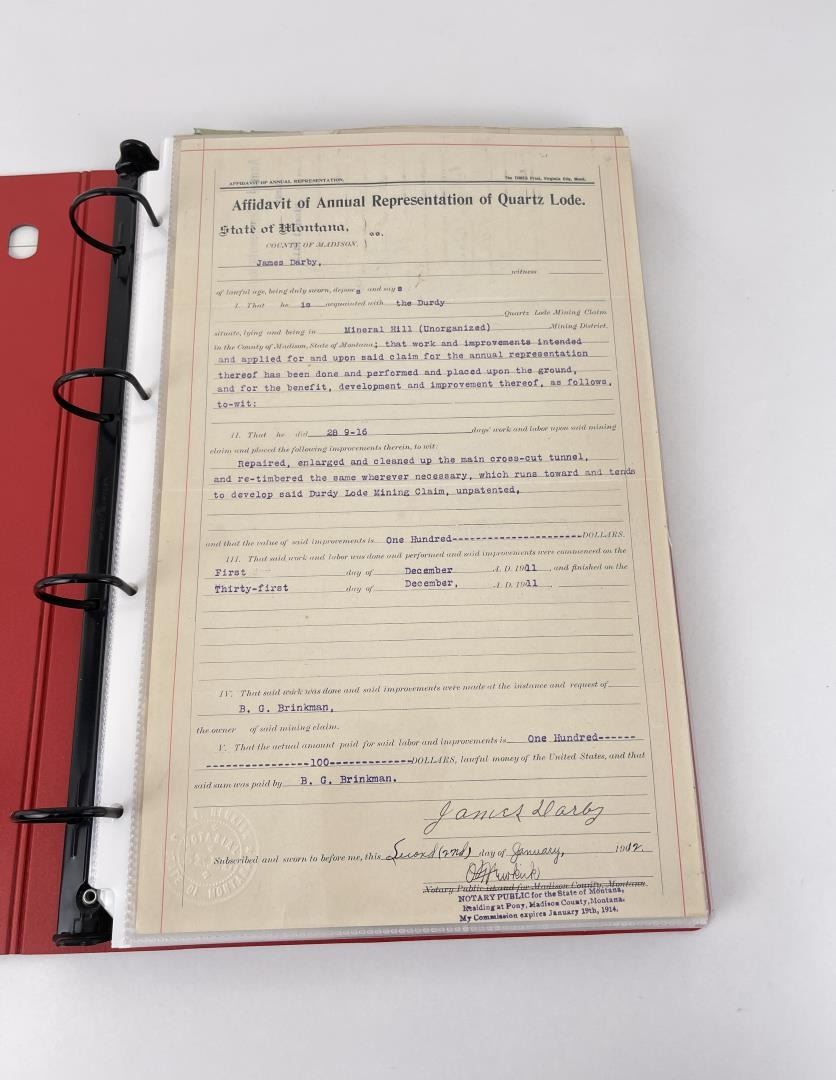 AFFIDAVIT OF ANNUAL REPRESENTATION. The TIMES Print, Virginia City, Mont.
Affidavit of Annual Representation of Quartz Lode.
State of Montana, ss.
COUNTY OF MADISON.
James Darby,
witness
of lawful age, being duly sworn, depose s and say s :
I. That he is acquainted with the Durdy
Quartz Lode Mining Claim
situate, lying and being in Mineral Hill (Unorganized) Mining District,
in the County of Madison, State of Montana; that work and improvements intended
and applied for and upon said claim for the annual representation
thereof has been done and performed and placed upon the ground,
and for the benefit, development and improvement thereof, as follows,
to-wit:
II. That he did 28 9-16 days' work and labor upon said mining
claim and placed the following improvements therein, to wit:
Repaired, enlarged and cleaned up the main cross-cut tunnel,
and re-timbered the same wherever necessary, which runs toward and tends
to develop said Durdy Lode Mining Claim, unpatented,
and that the value of said improvements is One Hundred-----------------------DOLLARS.
III. That said work and labor was done and performed and said improvements were commenced on the
First day of December A. D. 1911 , and finished on the
Thirty-first day of December, A. D. 1911 .
IV. That said work was done and said improvements were made at the instance and request of
B. G. Brinkman,
the owner of said mining claim.
V. That the actual amount paid for said labor and improvements is One Hundred------
-----------------100-------------DOLLARS, lawful money of the United States, and that
said sum was paid by B. G. Brinkman.
James Darby
Subscribed and sworn to before me, this Second (2nd) day of January, 1912.
Notary Public in and for Madison County, Montana.
NOTARY PUBLIC for the State of Montana,
Residing at Pony, Madison County, Montana.
My Commission expires January 19th, 1914.